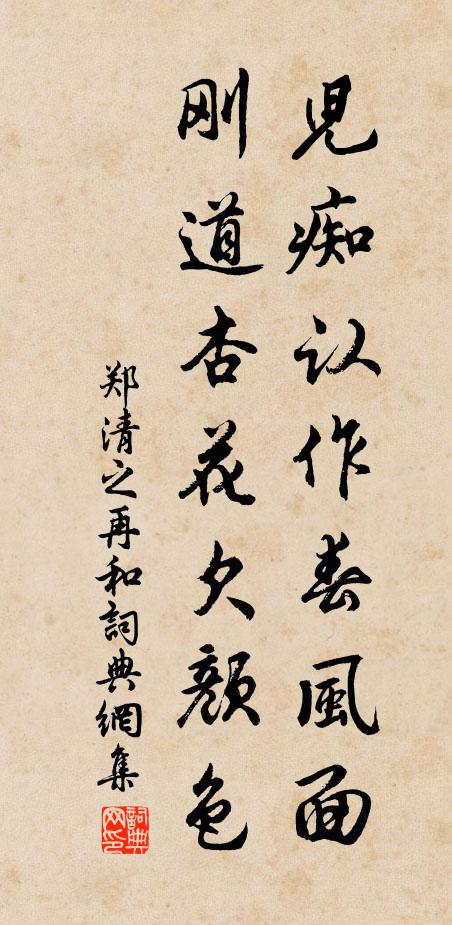 児痴认作春風面
刚道杏花欠顏色
郑清之再和詞典網集
詞典网印